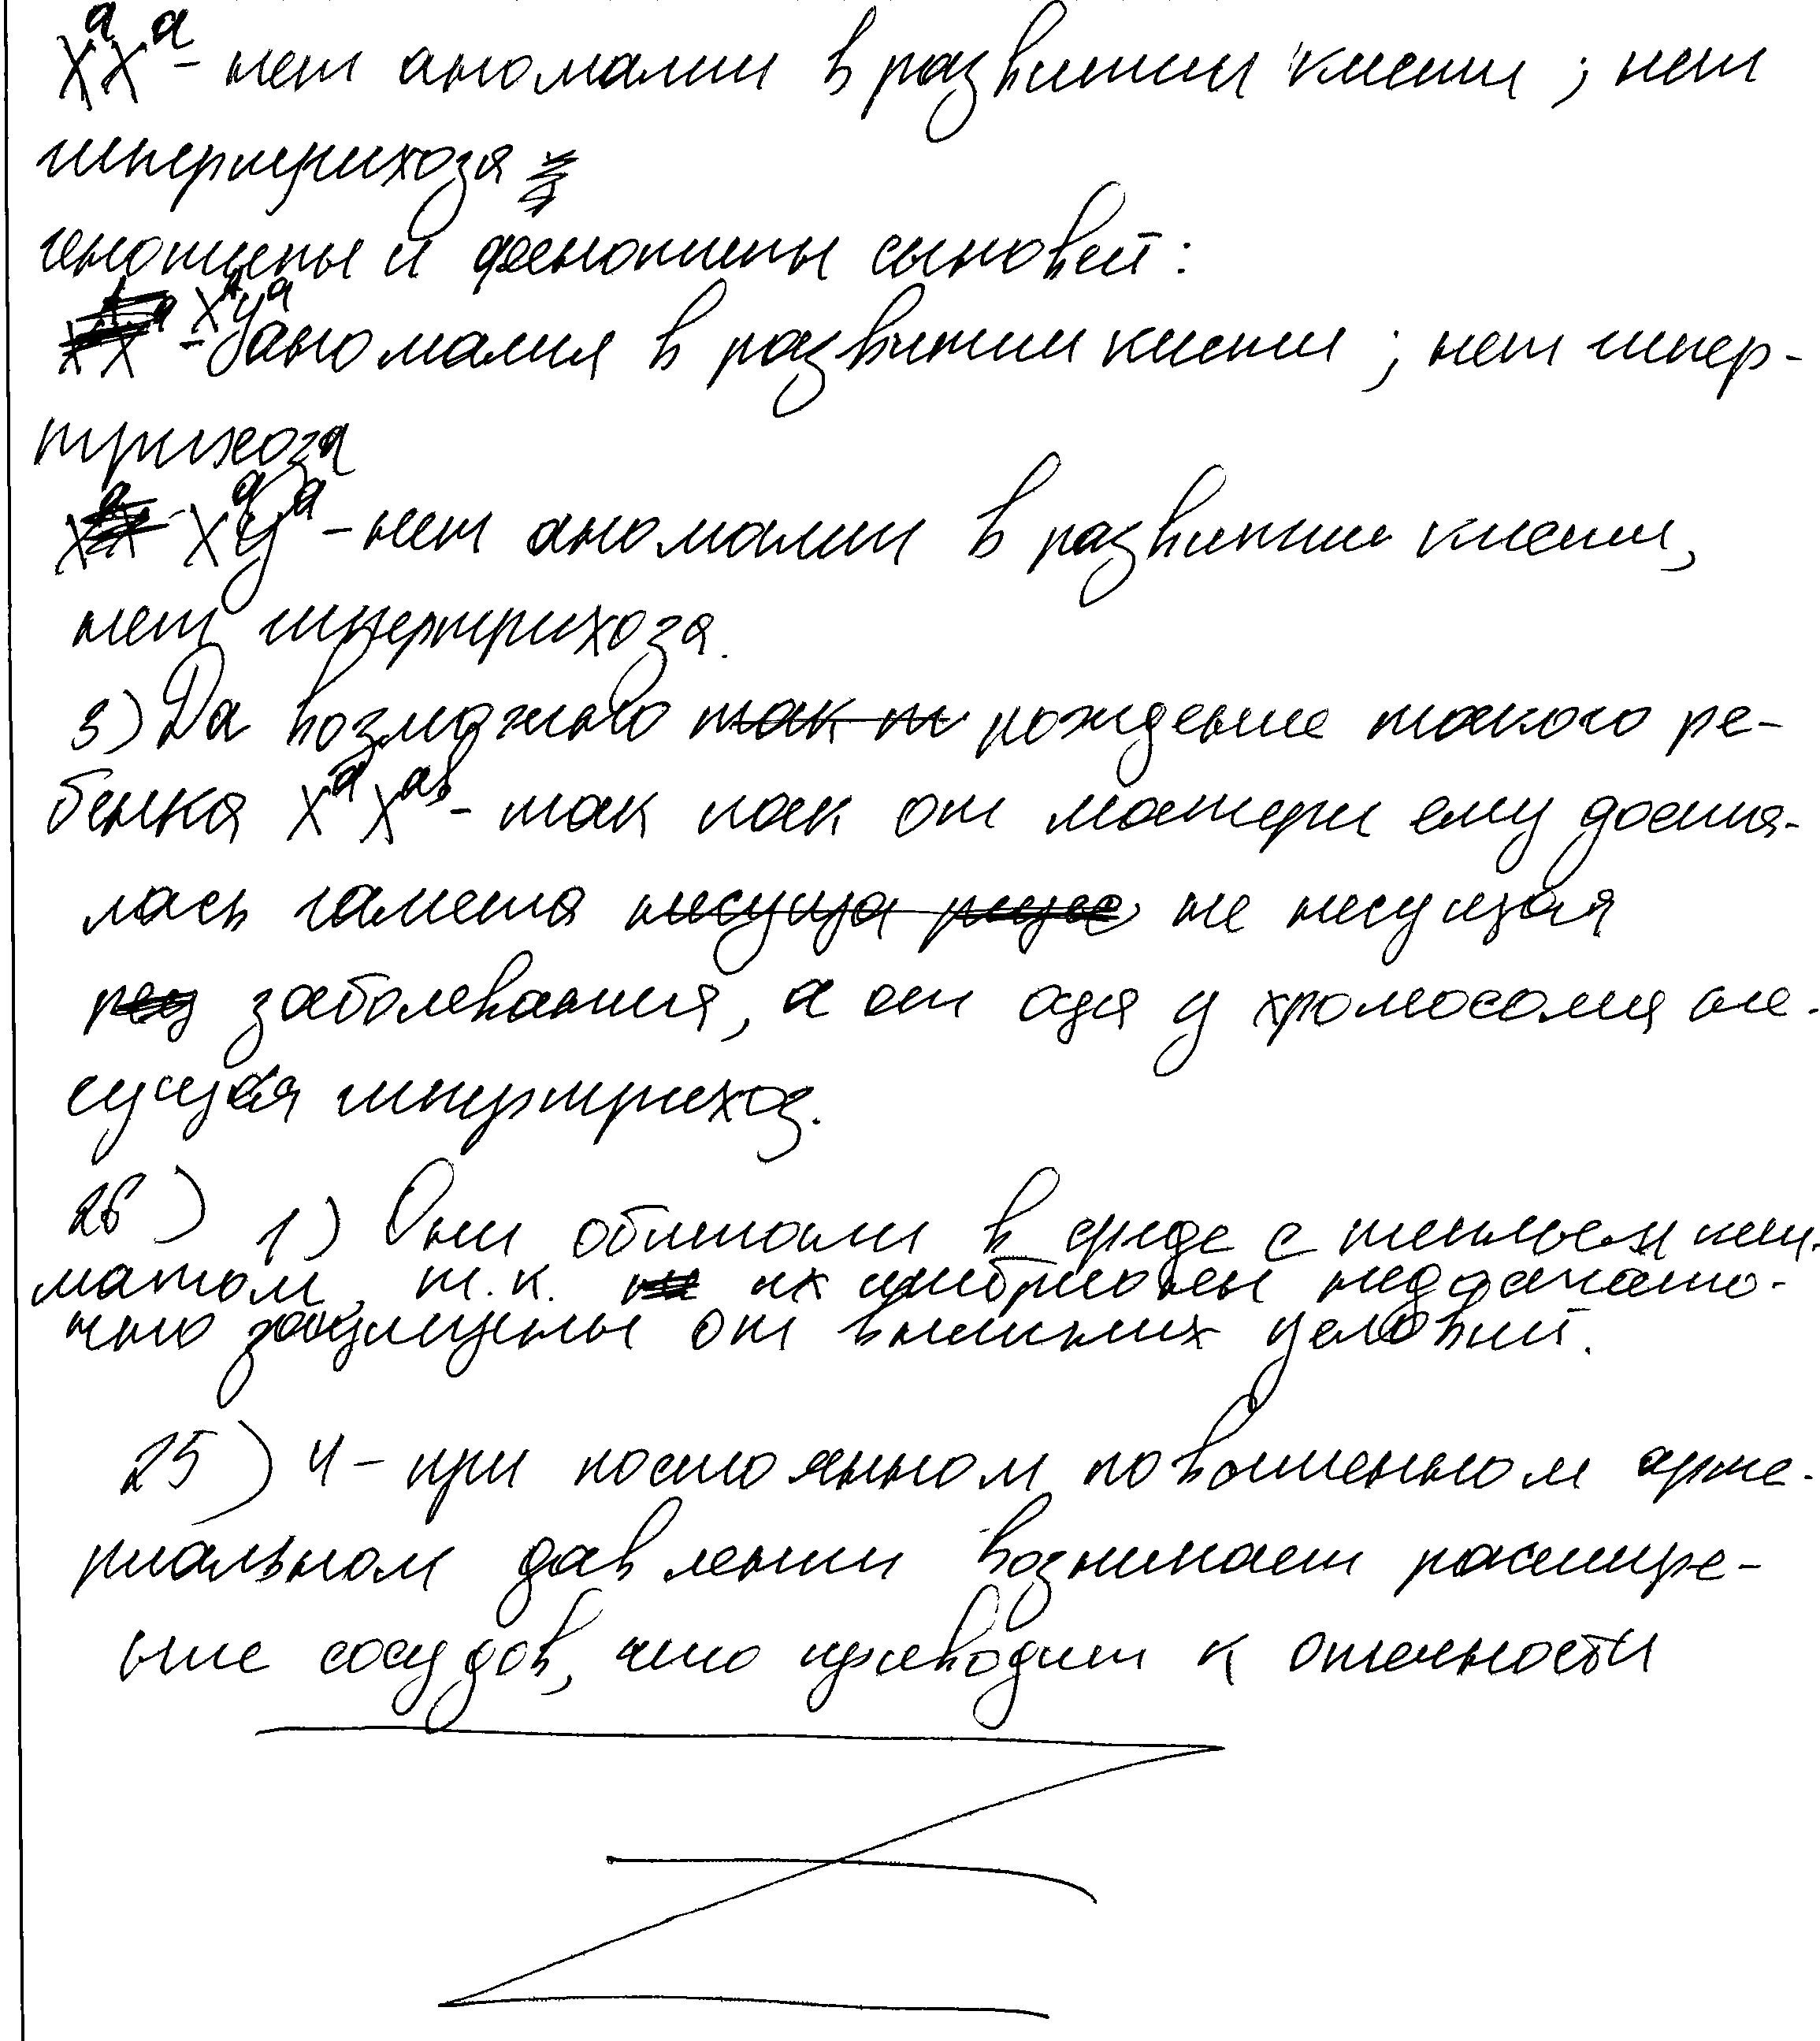 XᵃXᵃ - нет аномалии в развитии кисти ; нет
гипертрихоза
генотипы и фенотипы сыновей :
XᴬYᵃ - аномалия в развитии кисти ; нет гипер-
трихоза
XᵃYᵃ - нет аномалии в развитии кисти,
нет гипертрихоза.
3) Да возможно так рождение такого ре-
бенка XᵃXᵃᵇ - так как от матери ему доста-
лась гамета несуща не несущая
заболевания, а от отца y хромосома не-
сущая гипертрихоз.
26) 1) Они обитали в среде с теплым кли-
матом, т.к. их эмбрионы недостато-
чно защищены от внешних условий.
25) 4 - при постоянном повышенном арте-
риальном давлении возникает расшире-
ние сосудов, что приводит к отечности